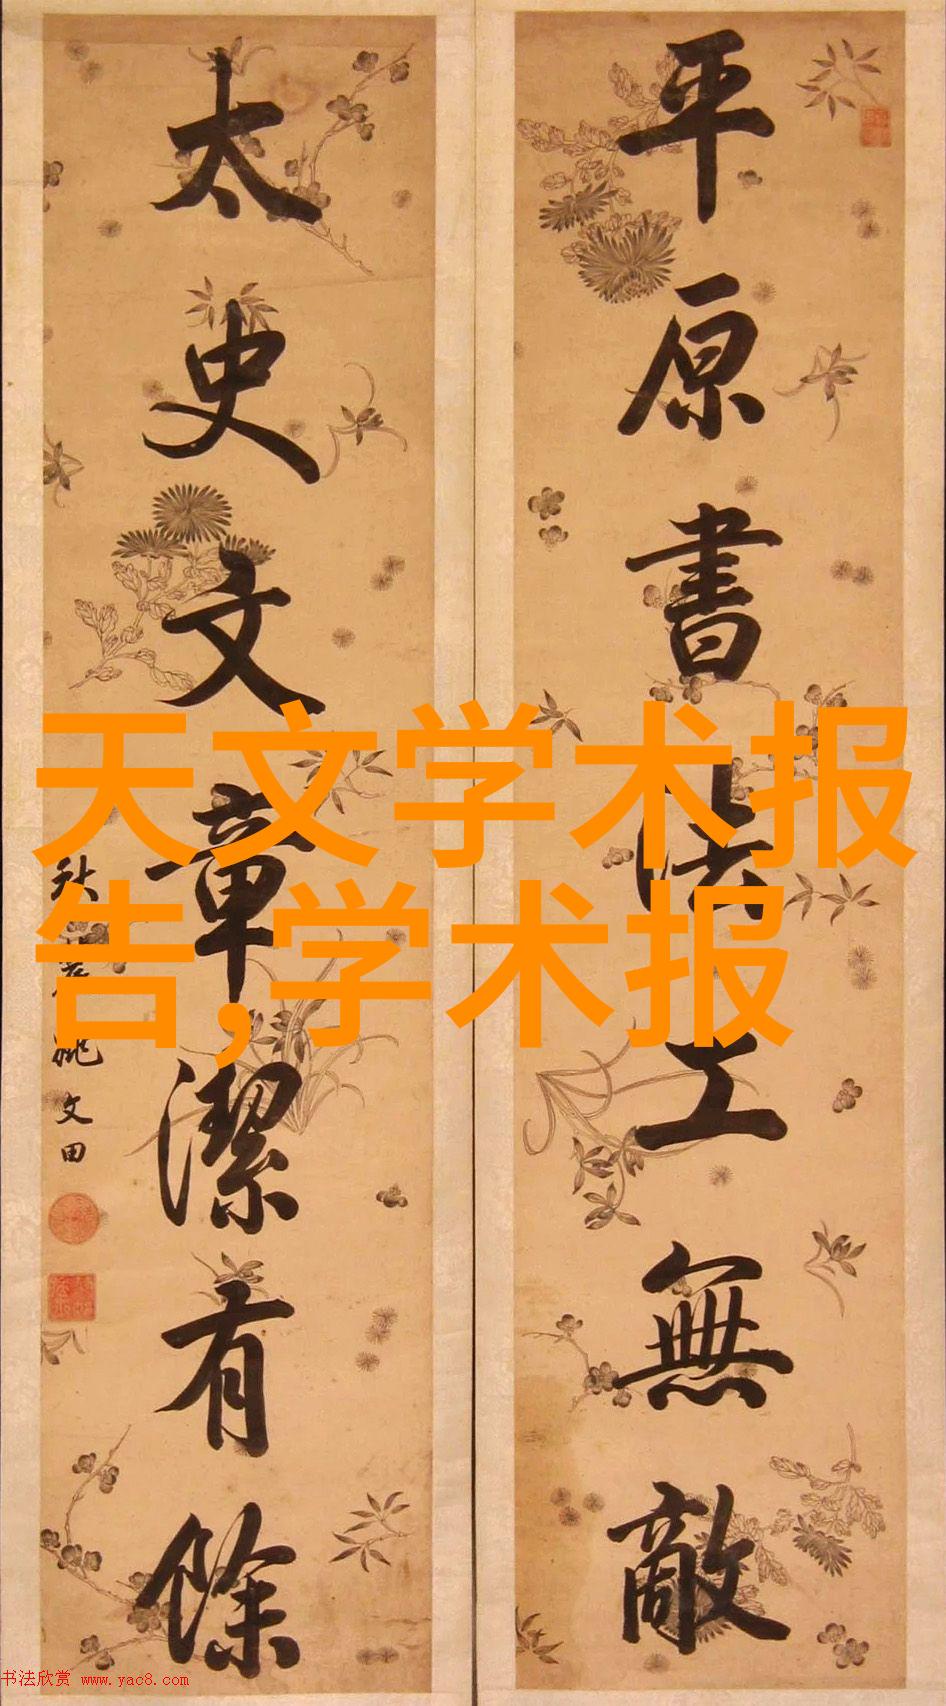 平原書法工無敵
太史文章潔有餘
秋農姚文田
天文学术报
告,学术报
书法欣赏 www.yac8.com